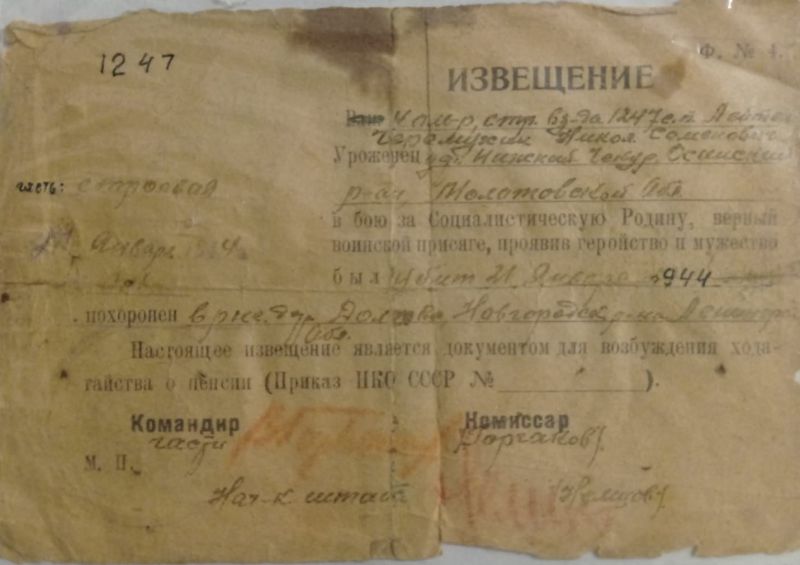 Ф. № 4.
1247
ИЗВЕЩЕНИЕ
Ваш Ком-р, стр. вз-да 1247 с.п.
Семенович
Уроженец Нижний Осинский
часть: строевая
р-на Молотовской Обл
в бою за Социалистическую Родину, верный
Января
воинской присяге, проявив геройство и мужество
был убит 21 Января 1944
похоронен в р-не дер Долгово Новгородск р-на Ленингр
Обл.
Настоящее извещение является документом для возбуждения хода-
тайства о пенсии (Приказ НКО СССР № ).
Командир Комиссар
части
М. П.
Нач-к штаба (Немцов)